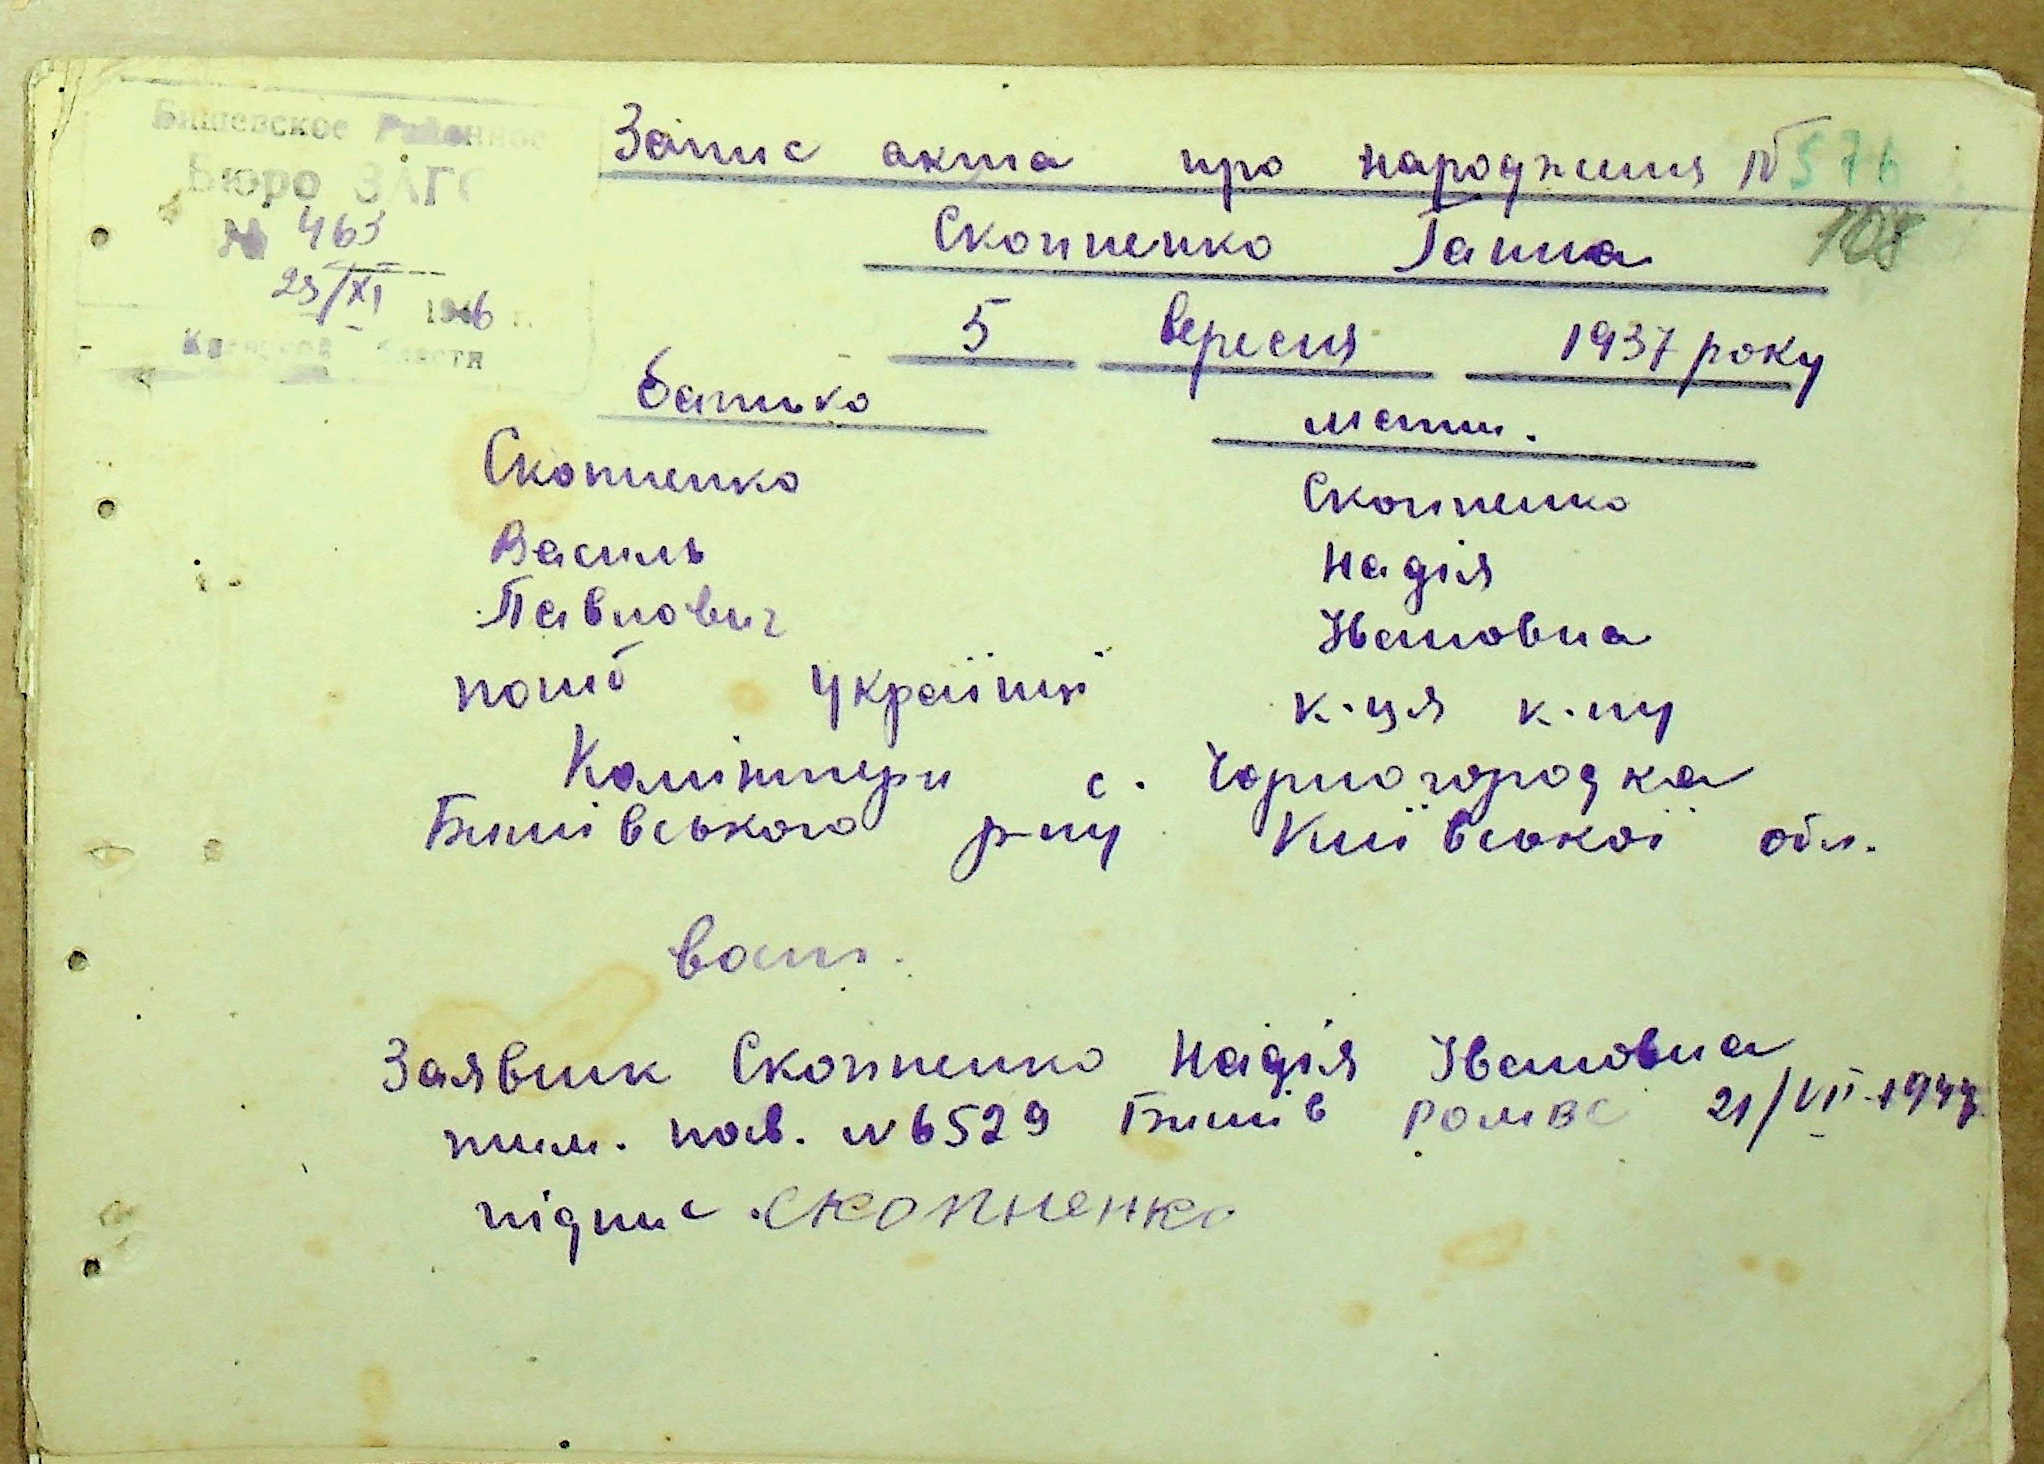 Бишевское Районное
Бюро ЗАГС
№ 463
23/XI 1946 г.
Киевской области
Запис акта про народження № 576
108
Скопненко Ганна
5 вересня 1937 року
батько мати.
Скопненко Скопненко
Василь Надія
Павлович Ивановна
погиб Українці к-ця к-пу
Комінтерн с. Чорногородка
Бишівського р-ну Київської обл.
Заявник Скопненко Надія Івановна
тим. пов. №6529 Бишів РОМВС 21/VII-1944
підпис Скопненко